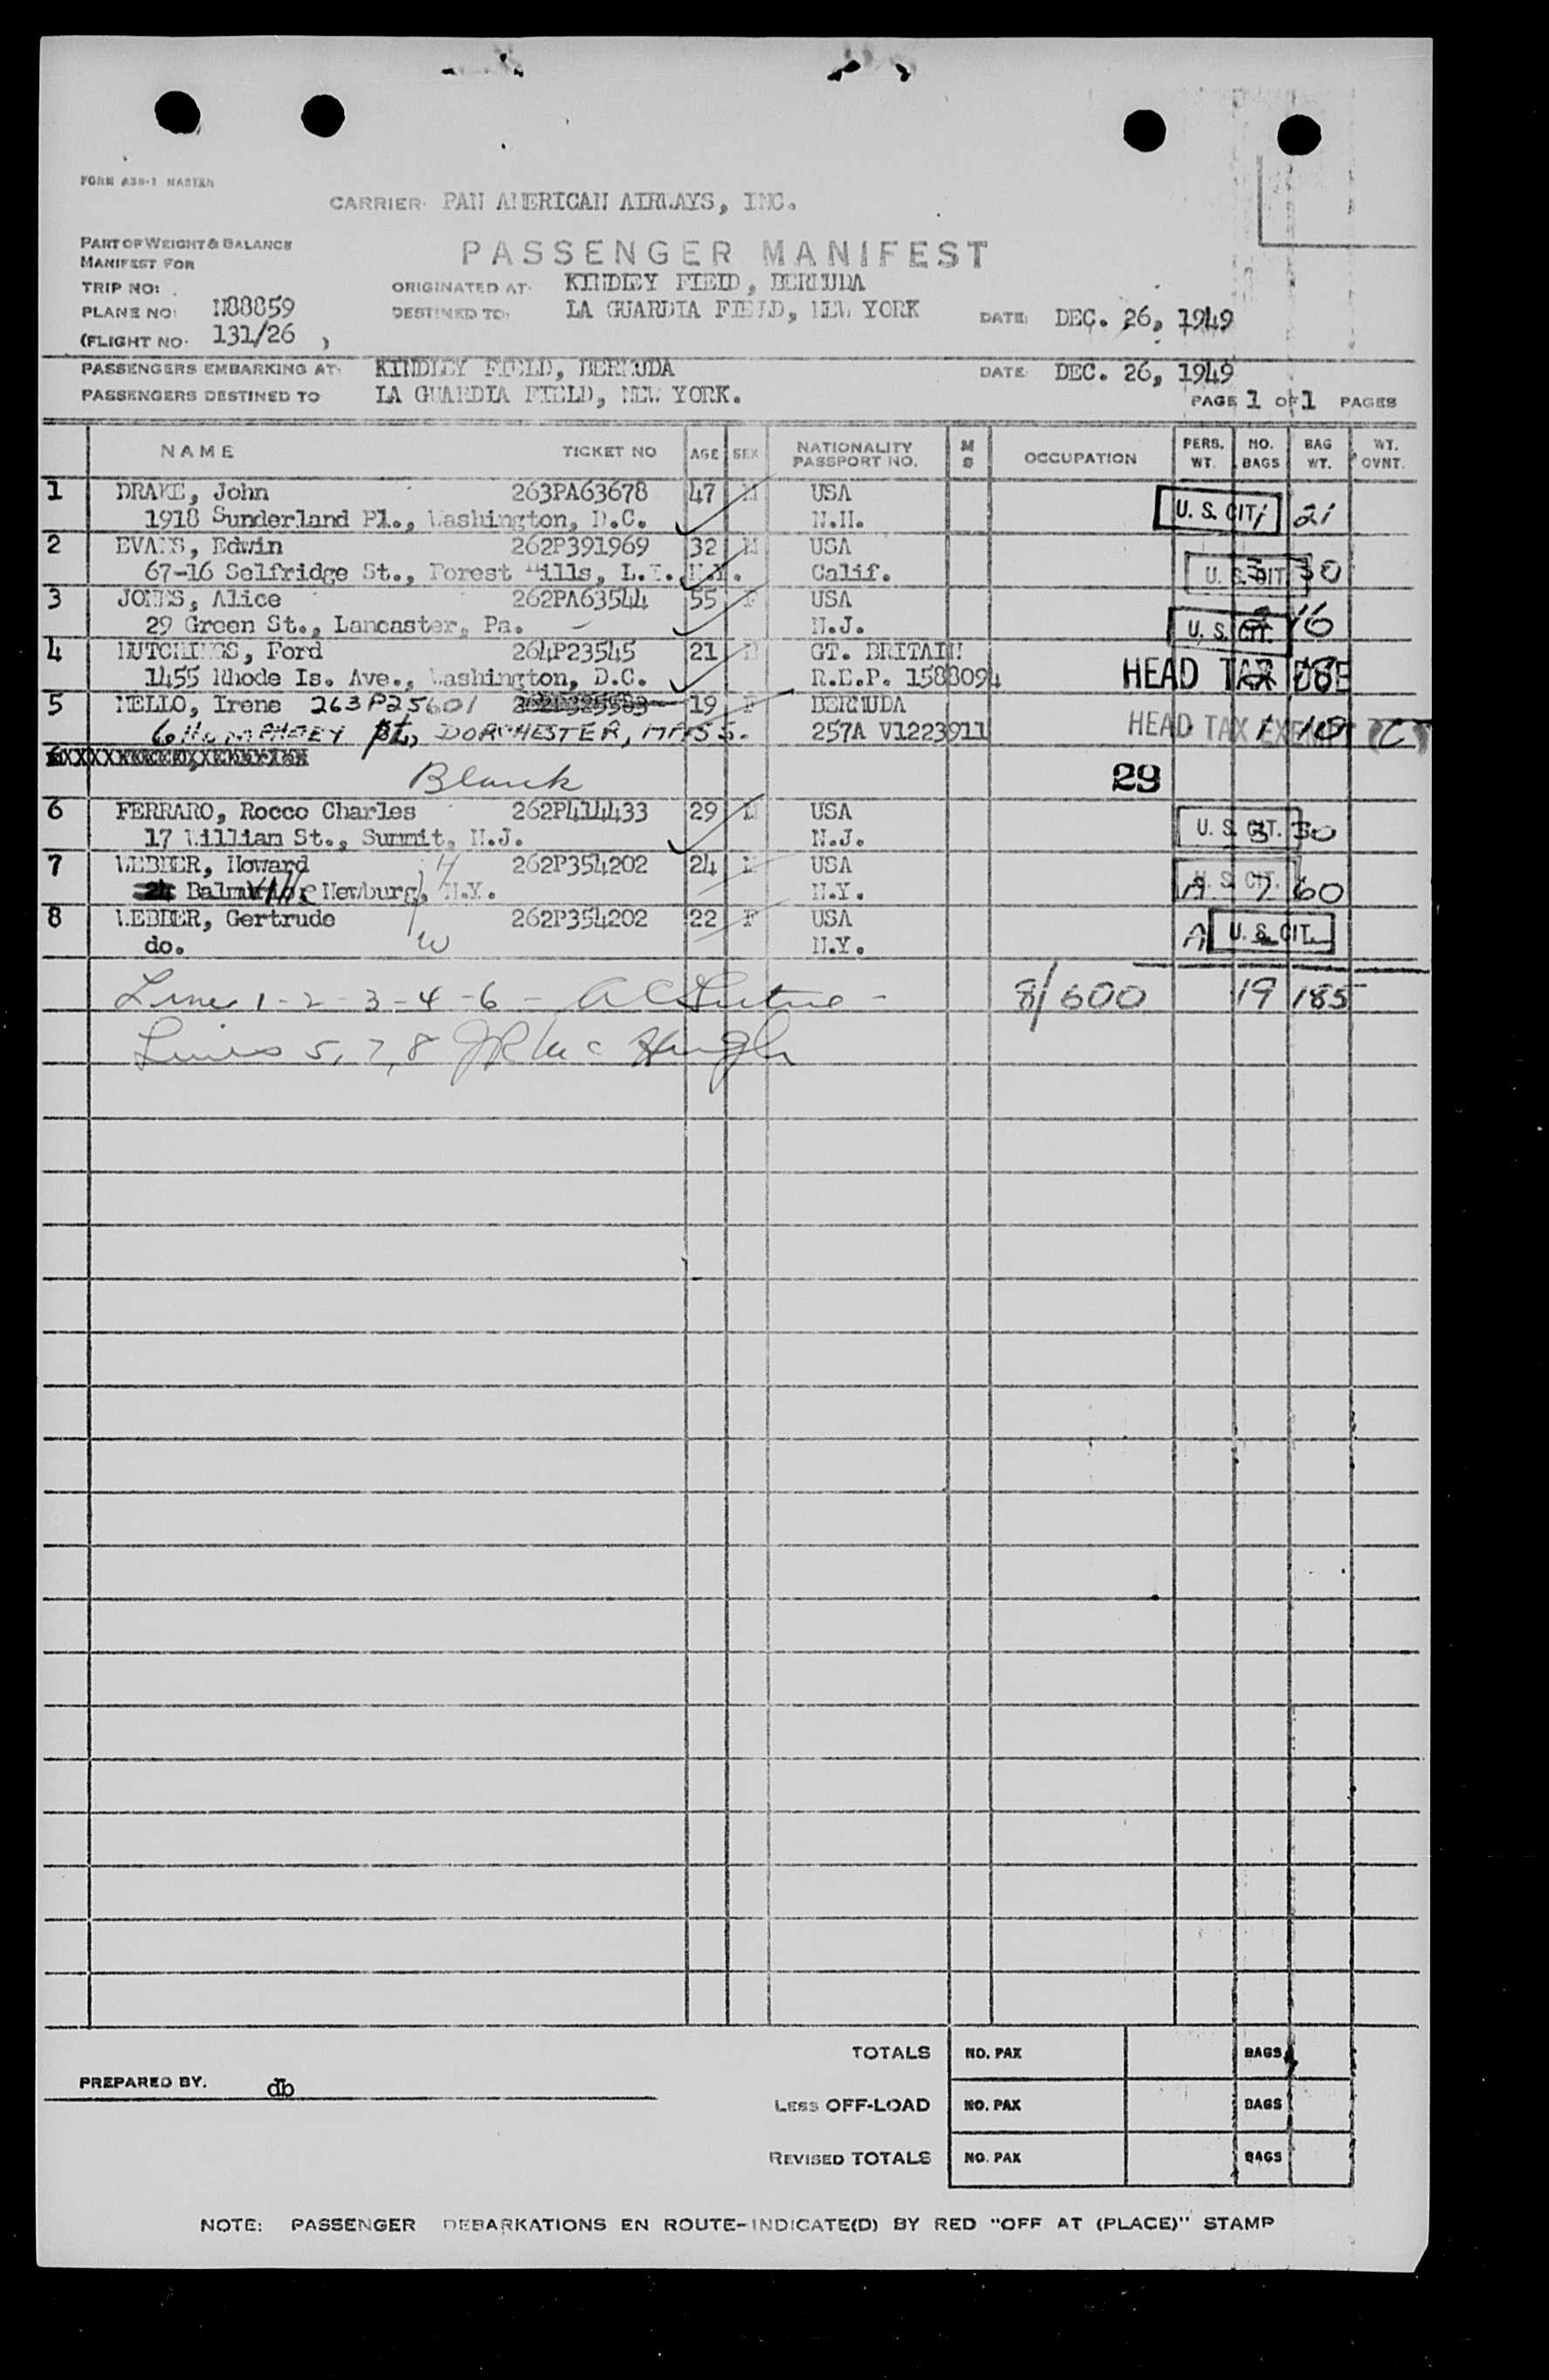 FORM A30-1 MASTER
CARRIER: PAN AMERICAN AIRWAYS, INC.
PART OF WEIGHT & BALANCE
MANIFEST FOR
PASSENGER MANIFEST
TRIP NO:
ORIGINATED AT: KINDLEY FIELD, BERMUDA
PLANE NO: N88859
DESTINED TO: LA GUARDIA FIELD, NEW YORK DATE: DEC. 26, 1949
(FLIGHT NO. 131/26 )
PASSENGERS EMBARKING AT: KINDLEY FIELD, BERMUDA DATE DEC. 26, 1949
PASSENGERS DESTINED TO LA GUARDIA FIELD, NEW YORK.
PAGE 1 OF 1 PAGES
NAME TICKET NO AGE SEX NATIONALITY PASSPORT NO. M S OCCUPATION PERS. WT. NO. BAGS BAG WT. WT. OVNT.
1 DRAKE, John 263PA63678 47 M USA
1918 Sunderland Pl., Washington, D.C. N.H. U. S. CIT. 21
2 EVANS, Edwin 262P391969 32 M USA
67-16 Selfridge St., Forest Hills, L.I. N.Y. Calif. U. S. CIT. 30
3 JONES, Alice 262PA63544 55 F USA
29 Green St., Lancaster, Pa. N.J. U. S. CIT. 16
4 HUTCHINGS, Ford 264P23545 21 M GT. BRITAIN
1455 Rhode Is. Ave., Washington, D.C. R.E.P. 1588094 HEAD TAX
5 MELLO, Irene 263P25601 19 F BERMUDA
6 HUMPHREY DORCHESTER, MASS. 257A V1223911 HEAD TAX EXEMPT 1 10
Blank 29
6 FERRARO, Rocco Charles 262P414433 29 M USA
17 William St., Summit, N.J. N.J. U. S. CIT. 3 30
7 WEBBER, Howard H 262P354202 24 M USA
Newburg, N.Y. N.Y. A U. S. CIT. 7 60
8 WEBBER, Gertrude 262P354202 22 F USA
do. W N.Y. A U. S. CIT.
Lines 1-2-3-4-6 - 8/600 19 185
Lines 5, 7, 8 JR McHugh
TOTALS NO. PAX BAGS
PREPARED BY. db
LESS OFF-LOAD NO. PAX BAGS
REVISED TOTALS NO. PAX BAGS
NOTE: PASSENGER DEBARKATIONS EN ROUTE-INDICATE(D) BY RED "OFF AT (PLACE)" STAMP